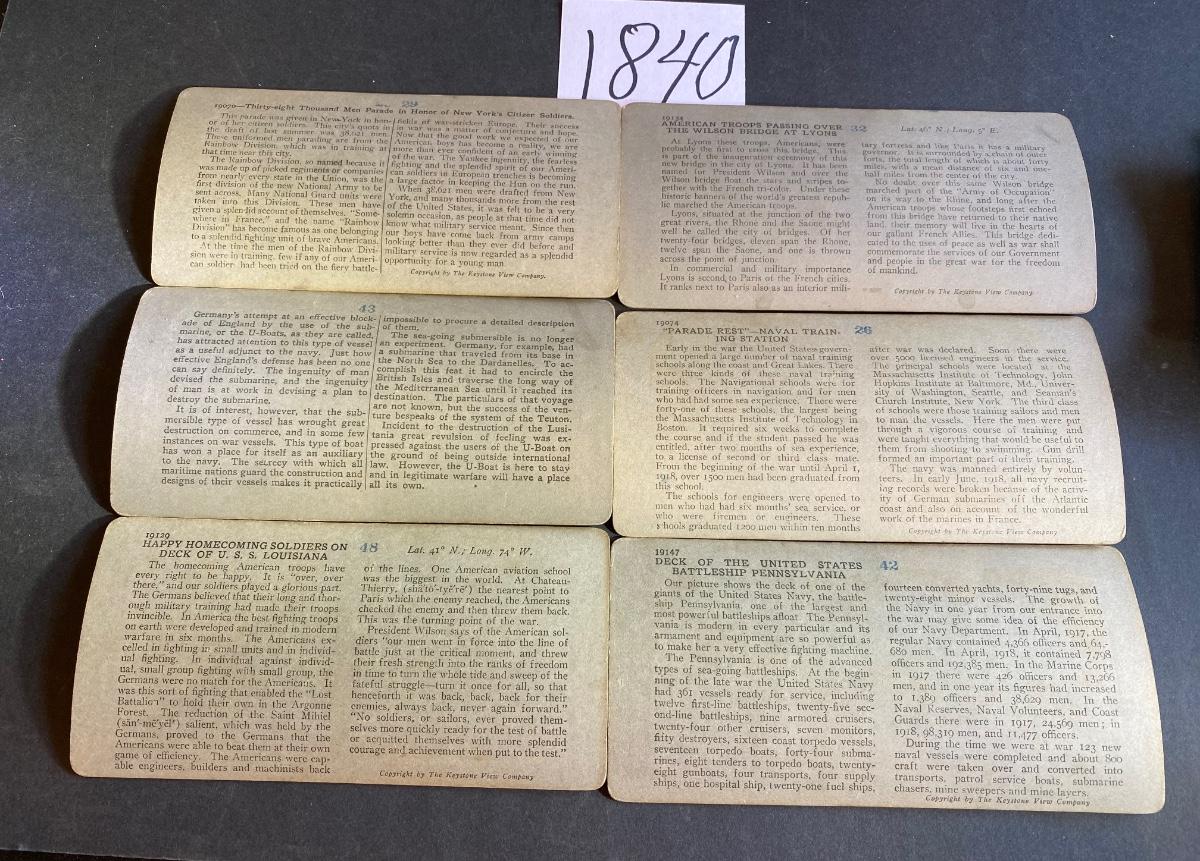 1840
29
19070—Thirty-eight Thousand Men Parade in Honor of New York's Citizen Soldiers.
This parade was given in New York in hon-
or of her citizen soldiers. This city's quota in
the draft of last summer was 38,621 men.
These uniformed men parading are from the
Rainbow Division, which was in training at
that time near this city.
The Rainbow Division, so named because it
was made up of picked regiments or companies
from nearly every state in the Union, was the
first division of the new National Army to be
sent across. Many National Guard units were
taken into this Division. These men have
given a splendid account of themselves. "Some-
where in France," and the name "Rainbow
Division" has become famous as one belonging
to a splendid fighting unit of brave Americans.
At the time the men of the Rainbow Divi-
sion were in training, few if any of our Ameri-
can soldier had been tried on the fiery battle-
fields of war-stricken Europe. Their success
in war was a matter of conjecture and hope.
Now that the good work we expected of our
American boys has become a reality, we are
more than ever confident of an early winning
of the war. The Yankee ingenuity, the fearless
fighting and the splendid spirit of our Ameri-
can soldiers in European trenches is becoming
a large factor in keeping the Hun on the run.
When 38,621 men were drafted from New
York, and many thousands more from the rest
of the United States, it was felt to be a very
solemn occasion, as people at that time did not
know what military service meant. Since then
our boys have come back from army camps
looking better than they ever did before and
military service is now regarded as a splendid
opportunity for a young man.
Copyright by The Keystone View Company.
19134
AMERICAN TROOPS PASSING OVER
THE WILSON BRIDGE AT LYONS
32
Lat. 46° N.; Long. 5° E.
At Lyons these troops, Americans, were
probably the first to cross this bridge. This
is part of the inauguration ceremony of this
new bridge in the city of Lyons. It has been
named for President Wilson and over the
Wilson bridge float the stars and stripes to-
gether with the French tri-color. Under these
historic banners of the world's greatest repub-
lic marched the American troops.
Lyons, situated at the junction of the two
great rivers, the Rhone and the Saone might
well be called the city of bridges. Of her
twenty-four bridges, eleven span the Rhone,
twelve span the Saone, and one is thrown
across the point of junction.
In commercial and military importance
Lyons is second to Paris of the French cities.
It ranks next to Paris also as an interior mili-
tary fortress and like Paris it has a military
governor. It is surrounded by a chain of outer
forts, the total length of which is about forty
miles, with a mean distance of six and one-
half miles from the center of the city.
No doubt over this same Wilson bridge
marched part of the "Army of Occupation"
on its way to the Rhine, and long after the
American troops whose footsteps first echoed
from this bridge have returned to their native
land, their memory will live in the hearts of
our gallant French Allies. This bridge dedi-
cated to the uses of peace as well as war shall
commemorate the services of our Government
and people in the great war for the freedom
of mankind.
Copyright by The Keystone View Company
43
Germany's attempt at an effective block-
ade of England by the use of the sub-
marine, or the U-Boats, as they are called,
has attracted attention to this type of vessel
as a useful adjunct to the navy. Just how
effective England's defense has been no one
can say definitely. The ingenuity of man
devised the submarine, and the ingenuity
of man is at work in devising a plan to
destroy the submarine.
It is of interest, however, that the sub-
mersible type of vessel has wrought great
destruction on commerce, and in some few
instances on war vessels. This type of boat
has won a place for itself as an auxiliary
to the navy. The secrecy with which all
maritime nations guard the construction and
designs of their vessels makes it practically
impossible to procure a detailed description
of them.
The sea-going submersible is no longer
an experiment. Germany, for example, had
a submarine that traveled from its base in
the North Sea to the Dardanelles. To ac-
complish this feat it had to recircle the
British Isles and traverse the long way of
the Mediterranean Sea until it reached its
destination. The particulars of that voyage
are not known, but the success of the ven-
ture bespeaks of the system of the Teuton.
Incident to the destruction of the Lusi-
tania great revulsion of feeling was ex-
pressed against the users of the U-Boat on
the ground of being outside international
law. However, the U-Boat is here to stay
and in legitimate warfare will have a place
all its own.
19074
"PARADE REST"—NAVAL TRAIN-
ING STATION
26
Early in the war the United States govern-
ment opened a large number of naval training
schools along the coast and Great Lakes. There
were three kinds of these naval training
schools. The Navigational schools were for
training officers in navigation and for men
who had had some sea experience. There were
forty-one of these schools, the largest being
the Massachusetts Institute of Technology in
Boston. It required six weeks to complete
the course and if the student passed he was
entitled, after two months of sea experience,
to a license of second or third class mate.
From the beginning of the war until April 1,
1918, over 1500 men had been graduated from
this school.
The schools for engineers were opened to
men who had had six months' sea service, or
who were firemen or engineers. These
schools graduated 1200 men within ten months
after war was declared. Soon there were
over 5000 licensed engineers in the service.
The principal schools were located at the
Massachusetts Institute of Technology, John
Hopkins Institute at Baltimore, Md., Univer-
sity of Washington, Seattle, and Seaman's
Church Institute, New York. The third class
of schools were those training sailors and men
to man the vessels. Here the men were put
through a vigorous course of training and
were taught everything that would be useful to
them from shooting to swimming. Gun drill
formed an important part of their training.
The navy was manned entirely by volun-
teers. In early June, 1918, all navy recruit-
ing records were broken because of the activ-
ity of German submarines off the Atlantic
coast and also on account of the wonderful
work of the marines in France.
Copyright by The Keystone View Company
19129
HAPPY HOMECOMING SOLDIERS ON
DECK OF U. S. S. LOUISIANA
48
Lat. 41° N.; Long. 74° W.
The homecoming American troops have
every right to be happy. It is "over, over
there," and our soldiers played a glorious part.
The Germans believed that their long and thor-
ough military training had made their troops
invincible. In America the best fighting troops
on earth were developed and trained in modern
warfare in six months. The Americans ex-
celled in fighting in small units and in individ-
ual fighting. In individual against individ-
ual, small group fighting with small group, the
Germans were no match for the Americans. It
was this sort of fighting that enabled the "Lost
Battalion" to hold their own in the Argonne
Forest. The reduction of the Saint Mihiel
(săn'-mē'yĕl') salient, which was held by the
Germans, proved to the Germans that the
Americans were able to beat them at their own
game of efficiency. The Americans were cap-
able engineers, builders and machinists back
of the lines. One American aviation school
was the biggest in the world. At Chateau-
Thierry, (sha'tō'-tyĕ're') the nearest point to
Paris which the enemy reached, the Americans
checked the enemy and then threw them back.
This was the turning point of the war.
President Wilson says of the American sol-
diers "our men went in force into the line of
battle just at the critical moment, and threw
their fresh strength into the ranks of freedom
in time to turn the whole tide and sweep of the
fateful struggle—turn it once for all, so that
henceforth it was back, back, back for their
enemies, always back, never again forward."
"No soldiers, or sailors, ever proved them-
selves more quickly ready for the test of battle
or acquitted themselves with more splendid
courage and achievement when put to the test."
Copyright by The Keystone View Company
19147
DECK OF THE UNITED STATES
BATTLESHIP PENNSYLVANIA
42
Our picture shows the deck of one of the
giants of the United States Navy, the battle-
ship Pennsylvania, one of the largest and
most powerful battleships afloat. The Pennsyl-
vania is modern in every particular and its
armament and equipment are so powerful as
to make her a very effective fighting machine.
The Pennsylvania is one of the advanced
types of sea-going battleships. At the begin-
ning of the late war the United States Navy
had 361 vessels ready for service, including
twelve first-line battleships, twenty-five sec-
ond-line battleships, nine armored cruisers,
twenty-four other cruisers, seven monitors,
fifty destroyers, sixteen coast torpedo vessels,
seventeen torpedo boats, forty-four subma-
rines, eight tenders to torpedo boats, twenty-
eight gunboats, four transports, four supply
ships, one hospital ship, twenty-one fuel ships,
fourteen converted yachts, forty-nine tugs, and
twenty-eight minor vessels. The growth of
the Navy in one year from our entrance into
the war may give some idea of the efficiency
of our Navy Department. In April, 1917, the
regular Navy contained 4,366 officers and 64,-
680 men. In April, 1918, it contained 7,798
officers and 192,385 men. In the Marine Corps
in 1917 there were 426 officers and 13,266
men, and in one year its figures had increased
to 1,389 officers and 38,629 men. In the
Naval Reserves, Naval Volunteers, and Coast
Guards there were in 1917, 24,569 men; in
1918, 98,319 men, and 11,477 officers.
During the time we were at war 123 new
naval vessels were completed and about 800
craft were taken over and converted into
transports, patrol service boats, submarine
chasers, mine sweepers and mine layers.
Copyright by The Keystone View Company